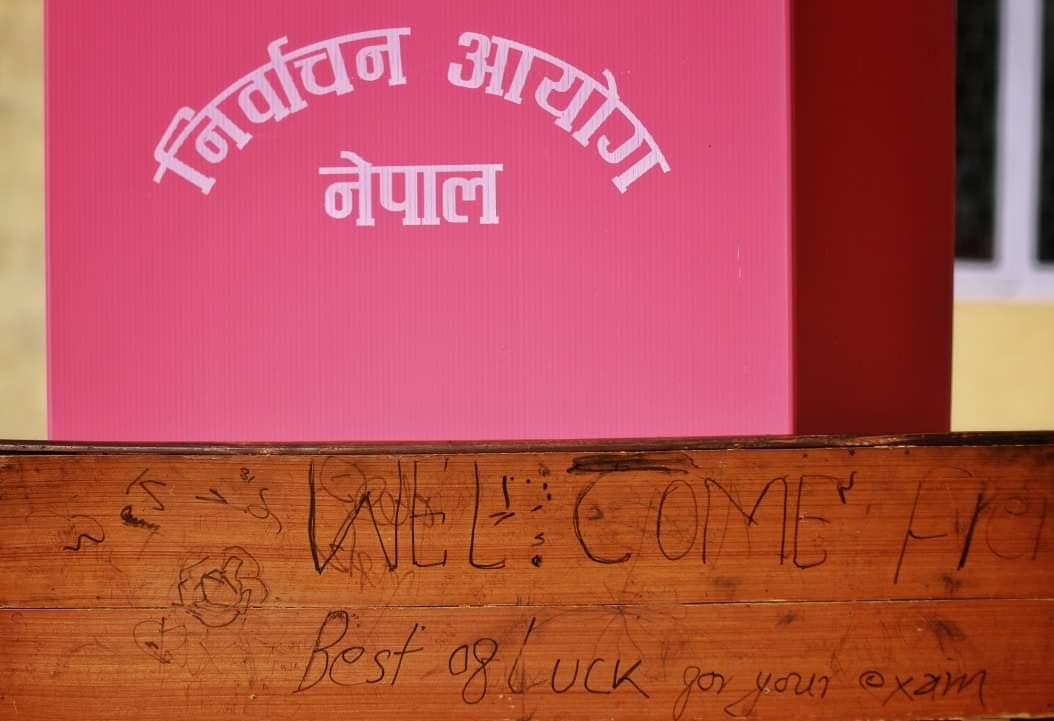 निर्वाचन आयोग
नेपाल
WELCOME
Best of Luck for your exam